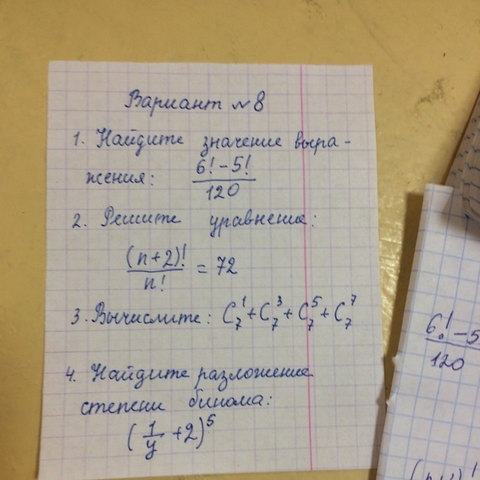 Вариант №8
1. Найдите значение выра-
жения: (6! - 5!)/120
2. Решите уравнение:
(n+2)!/n! = 72
3. Вычислите: C₇¹ + C₇³ + C₇⁵ + C₇⁷
4. Найдите разложение
степени бинома:
(1/y + 2)⁵
6! - 5
120